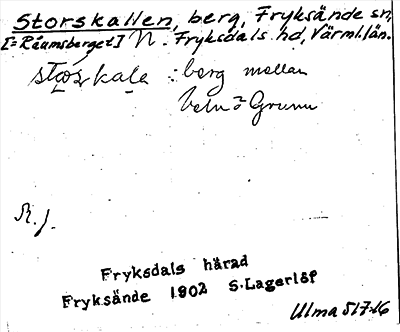 Storskallen, berg, Fryksände sn,
[= Råumsberget] N. Fryksdals hd, Värml. län.
berg mellan
R. J.
Fryksdals härad
Fryksände 1902 S. Lagerlöf
Ulma 517:16